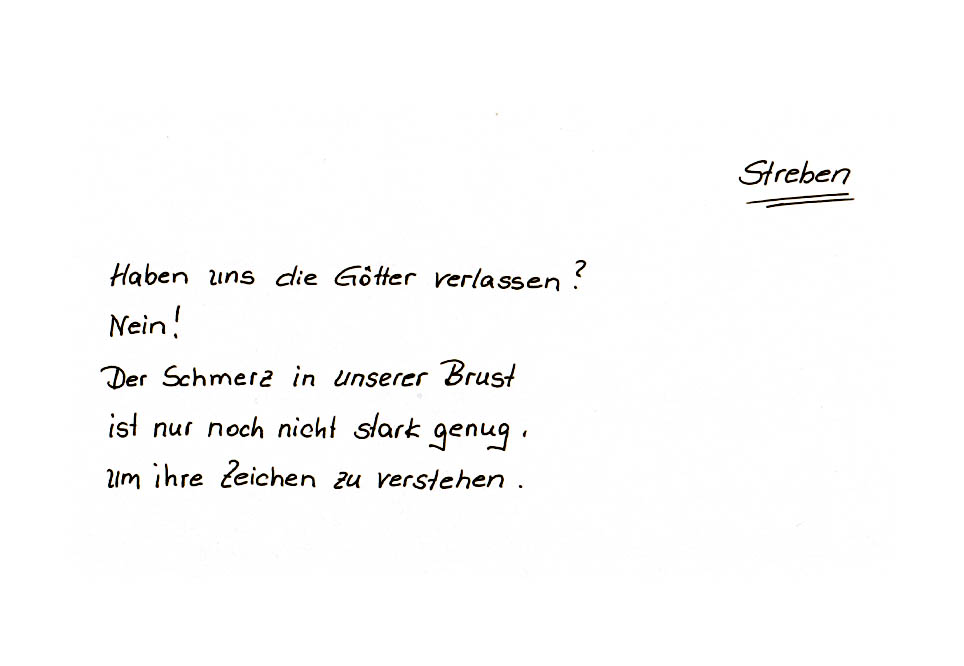 Streben
Haben uns die Götter verlassen?
Nein!
Der Schmerz in unserer Brust
ist nur noch nicht stark genug,
um ihre Zeichen zu verstehen.